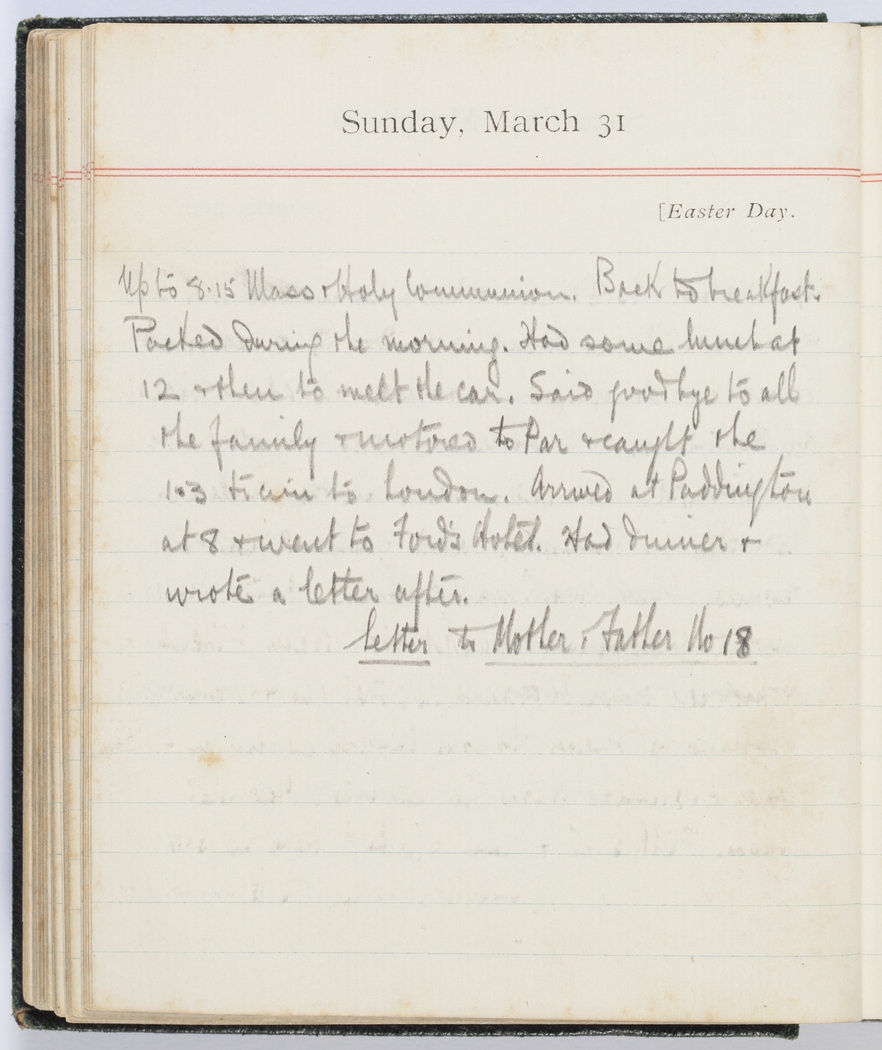 Sunday, March 31
[Easter Day.
Up to 8.15 Mass & Holy Communion. Back to breakfast.
Packed during the morning. Had some lunch at
12 & then to meet the car. Said goodbye to all
the family & motored to Par & caught the
1.3 train to London. Arrived at Paddington
at 8 & went to Ford's Hotel. Had dinner &
wrote a letter after.
Letter to Mother & Father No 18